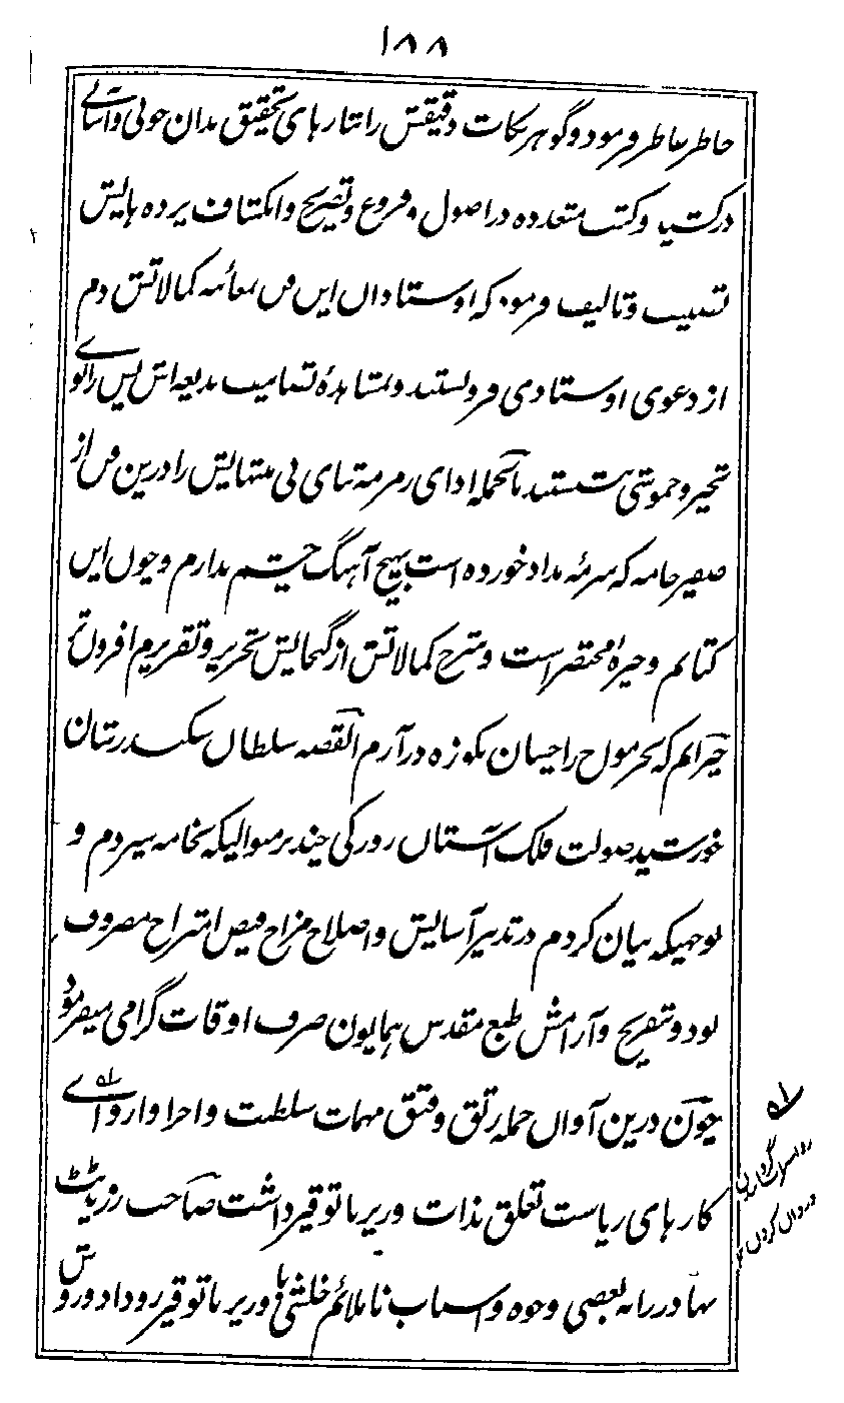 ۱۸۸
خاطر عاطر فرمود و گوهر نکات دقیقش را نثارهای تحقیق بدان خوبی و آسانی
در کشید و کتب متعدده در اصول و فروع و تصریح و انکشاف پرده هایش
تصنیف و تالیف فرمود که اوستادان این فن بمعائنه کمالاتش دم
از دعوی اوستادی فروبستند و بمشاهدهٔ تصانیف بدیعه اش پس زانوے
تحیر و خموشی نشستند بالجمله ادای زمزمه ثنای بی منتهایش را درین فن از
صفیر خامه که سرمهٔ مداد خورده است بهیچ آهنگ چشم ندارم و چون این
کتابم وجیزهٔ مختصر است و شرح کمالاتش از گنجایش تحریر و تقریرم افزون تر
حیرانم که بحر مواج را چسان بکوزه در آرم القصه سلطان سکندر شان
خورشید صولت فلک آستان روزکی چند بر منوالیکه بخامه سپردم و
بوجهیکه بیان کردم در تدبیر آسایش و اصلاح مزاج فیض امتزاج مصروف
بود و تفریح و آرامش طبع مقدس همایون صرف اوقات گرامی میفرمود
چون درین آوان جمله رتق و فتق مهمات سلطنت و اجرا و ارواے
کارهای ریاست تعلق بذات وزیر با توقیر داشت صاحب رزیڈنٹ
بهادر را به بعضی وجوه و اسباب ناملائم خلشی با وزیر با توقیر روداد و روش
ـله
روا
گردانیدن
و روان کردن